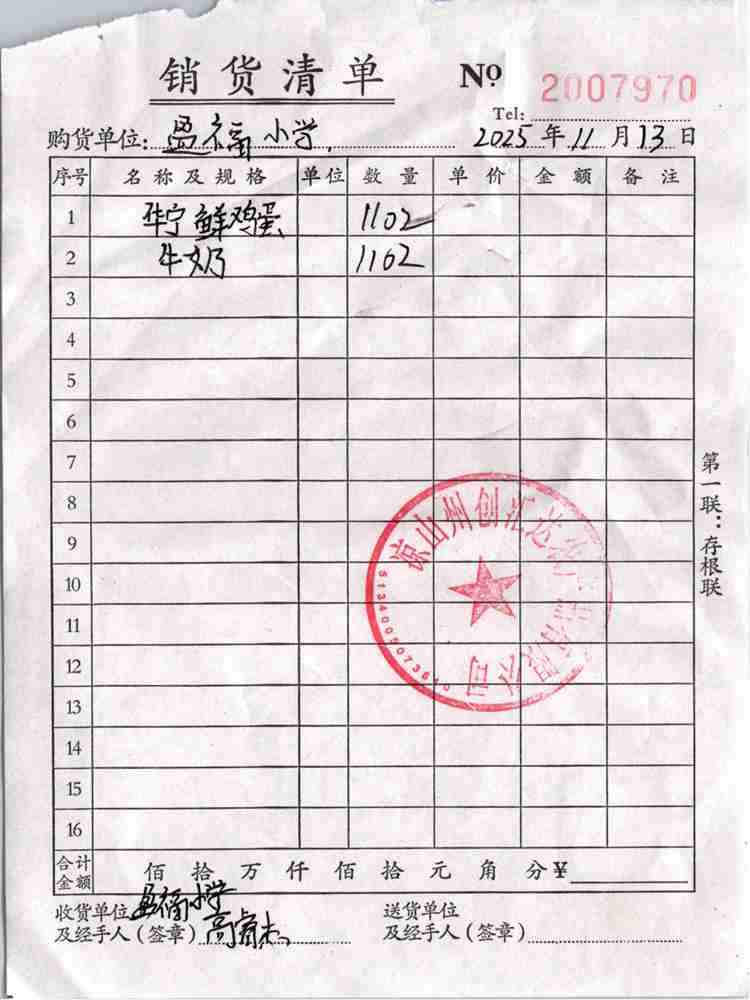 销货清单 No 2007970
Tel:
购货单位: 盈福小学. 2025年11月13日
序号 名称及规格 单位 数量 单价 金额 备注
1 华宁鲜鸡蛋 1102
2 牛奶 1102
3
4
5
6
7
8
9
10
11
12
13
14
15
16
合计金额 佰拾万仟佰拾元角分¥
收货单位及经手人(签章) 盈福小学
送货单位及经手人(签章)
第一联:存根联
凉山州创汇达